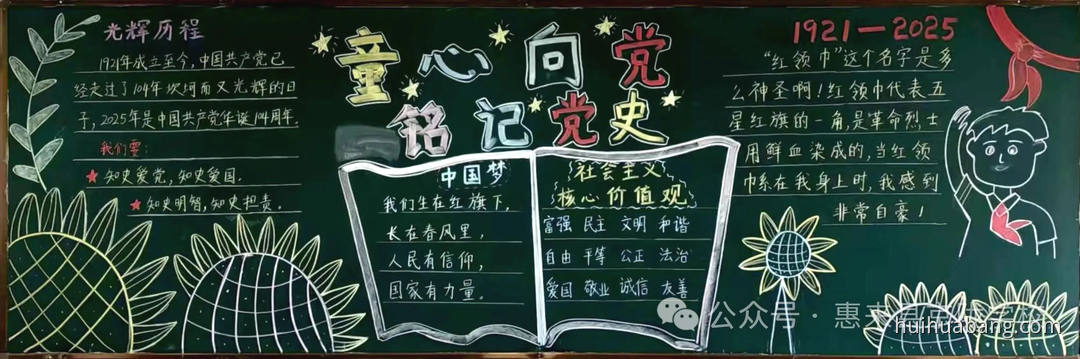 光辉历程
1921年成立至今,中国共产党已
经走过了104年坎坷而又光辉的日
子,2025年是中国共产党年诞104周年。
我们要:
知史爱党,知史爱国。
知史明智,知史担责。
童心向党
铭记党史
中国梦
我们生在红旗下,
长在春风里,
人民有信仰,
国家有力量。
社会主义
核心价值观
富强 民主 文明 和谐
自由 平等 公正 法治
爱国 敬业 诚信 友善
1921—2025
“红领巾”这个名字是多
么神圣啊!红领巾代表五
星红旗的一角,是革命烈士
用鲜血染成的,当红领
巾系在我身上时,我感到
非常自豪!
公众号·惠来
huihuabang.com